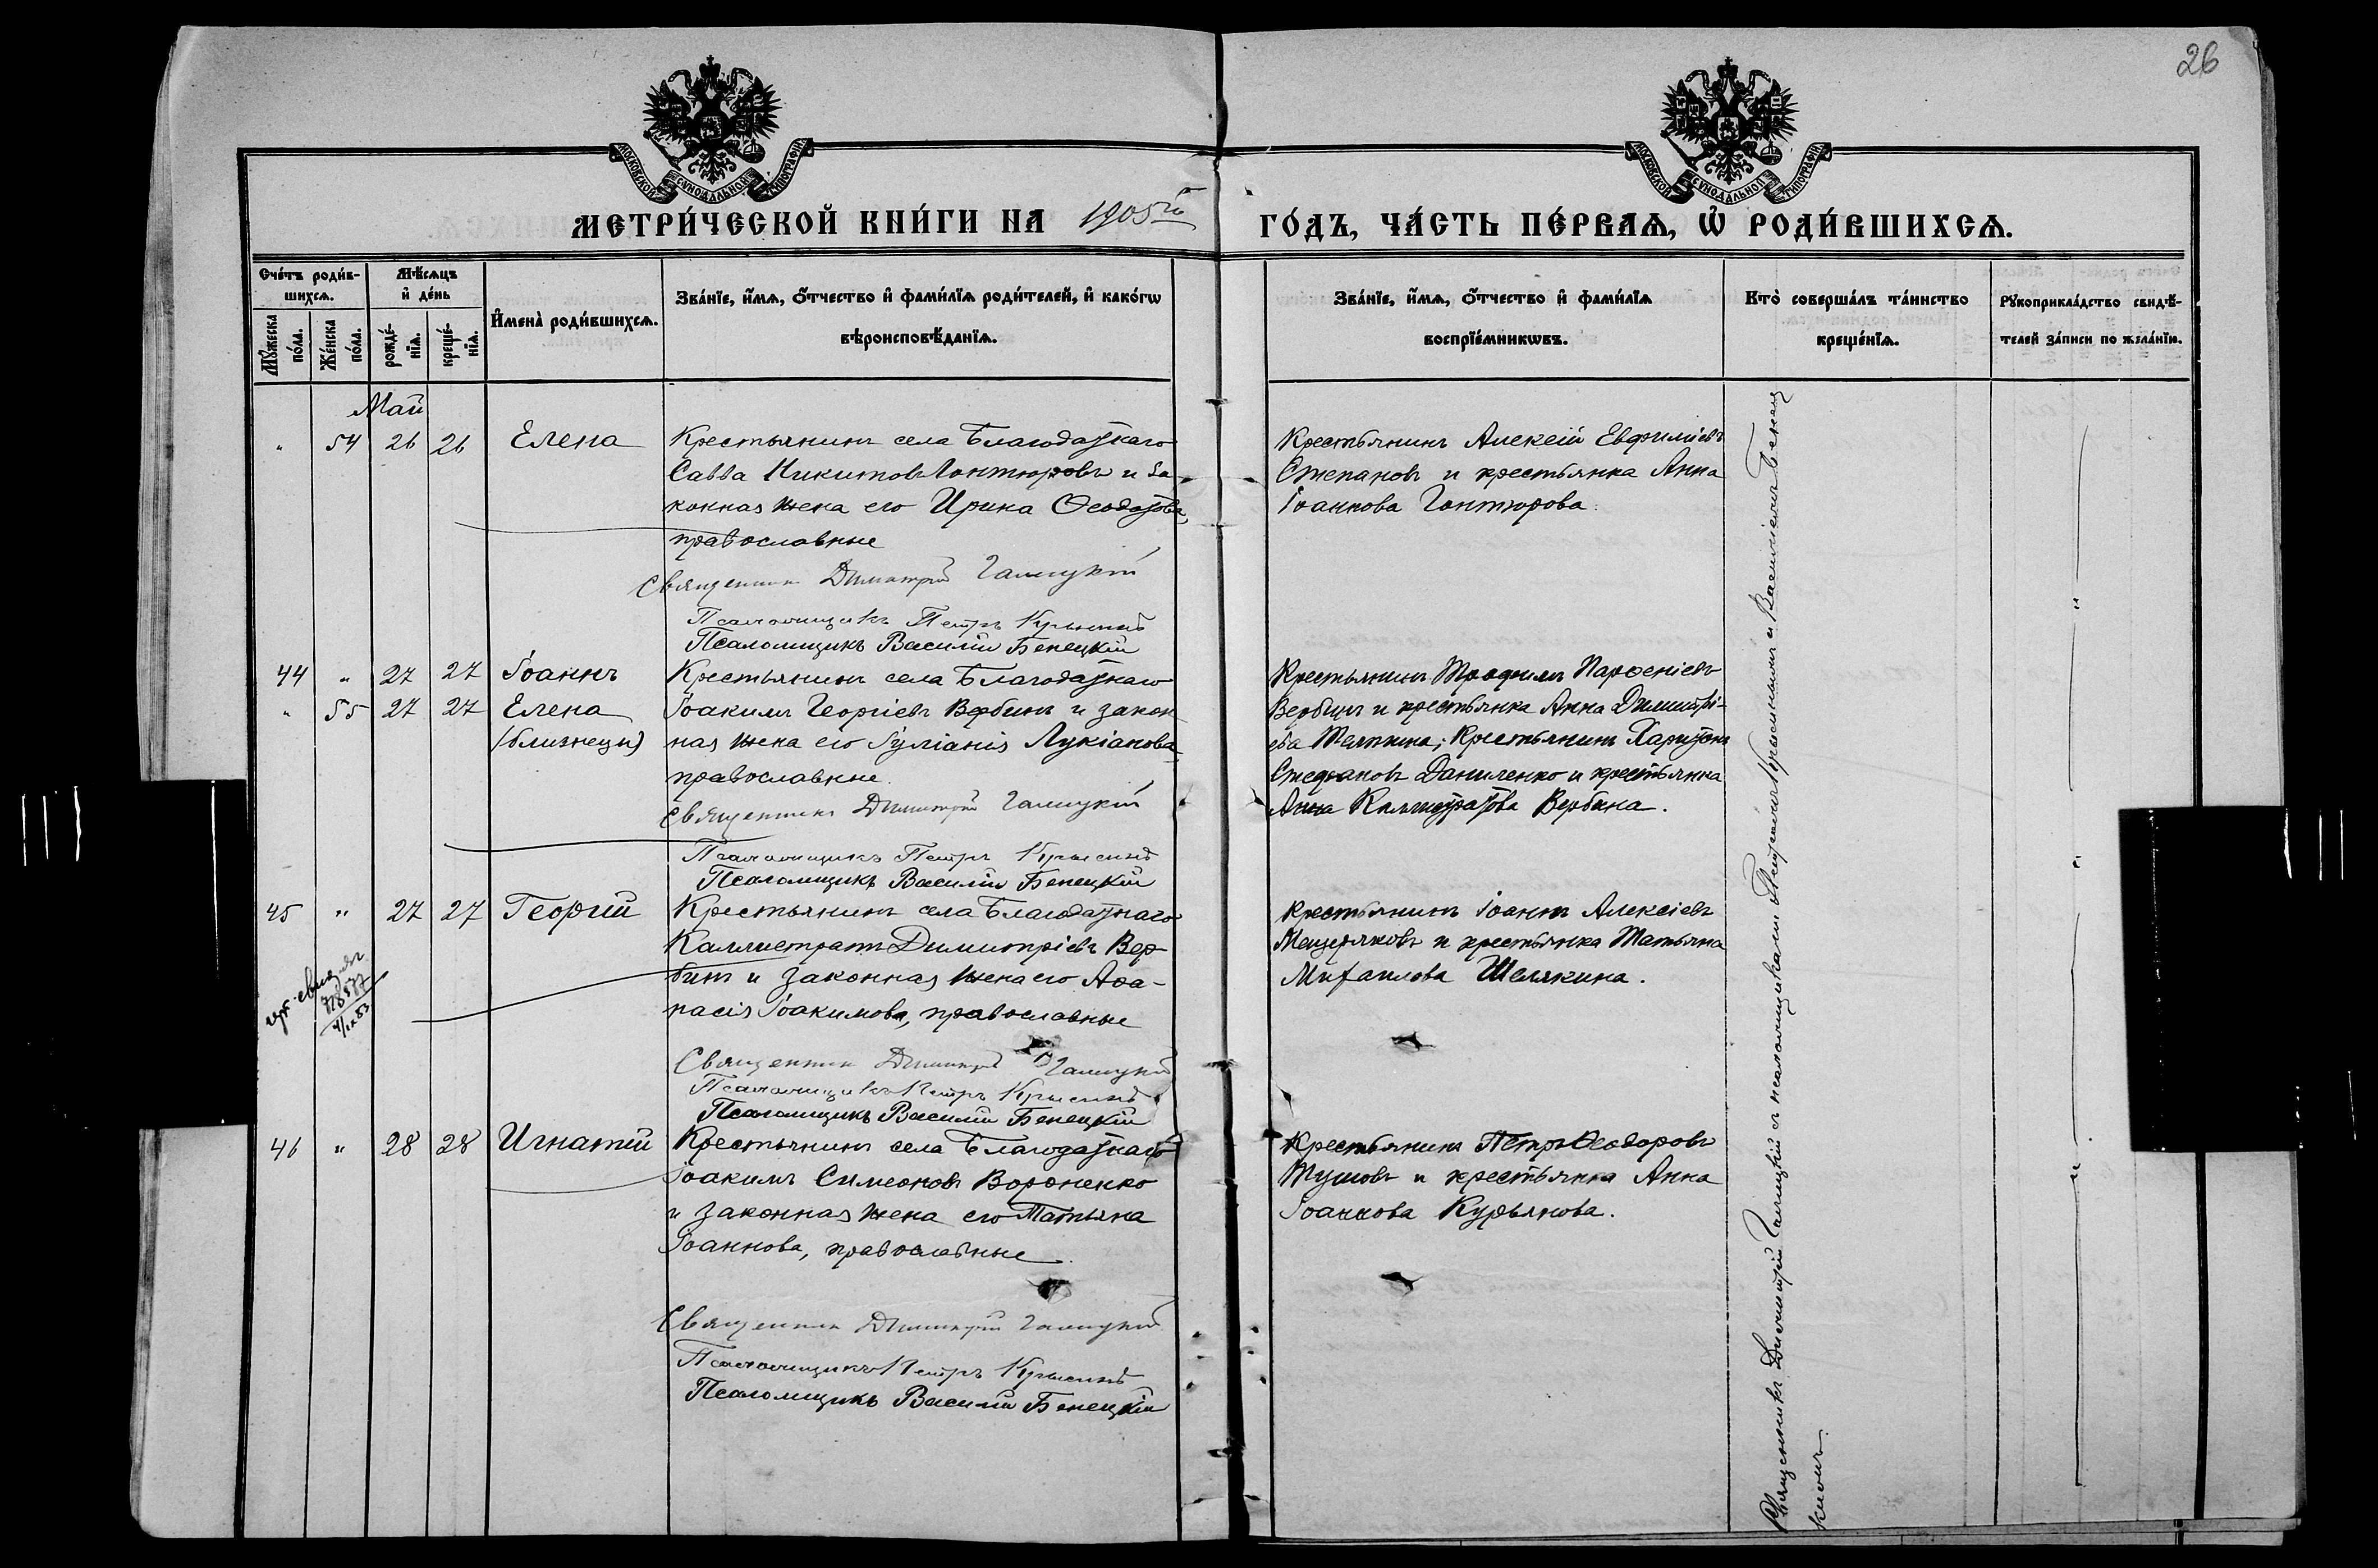 26
МОСКОВСКОЙ СѴНОДАЛЬНОЙ ТИПОГРАФІИ
МОСКОВСКОЙ СѴНОДАЛЬНОЙ ТИПОГРАФІИ
МЕТРИ́ЧЕСКОЙ КНИ́ГИ НА 1905й ГО́ДЪ, ЧА́СТЬ ПЕ́РВАѦ, Ѡ РОДИ́ВШИХСѦ.
Сче́тъ роди́в-
шихсѧ.
Мꙋ́жеска
по́ла.
Же́нска
по́ла.
Мѣ́сѧцъ
и҆ де́нь
рожде́-
нїѧ.
креще́-
нїѧ.
И҆мена̀ роди́вшихсѧ.
Зва́нїе, и҆́мѧ, ѻ҆́тчество и҆ фами́лїѧ роди́телей, и҆ како́гѡ
вѣроисповѣ́данїѧ.
Зва́нїе, и҆́мѧ, ѻ҆́тчество и҆ фами́лїѧ
воспрїе́мникѡвъ.
Кто̀ соверша́лъ та́инство
креще́нїѧ.
Рꙋкоприкла́дство свидѣ́-
телей за́писи по жела́нїю.
Май
" 54 26 26 Елена
Крестьянинъ села Благодатнаго
Савва Никитовъ Гонтюровъ и за-
конная жена его Ирина Ѳеодотова,
православные
Священникъ Димитрій Галицкій
Псаломщикъ Петръ
Псаломщикъ Василій Бенецкій
Крестьянинъ Алексій Евфиміевъ
Степановъ и крестьянка Анна
Іоаннова Гонтюрова.
44 " 27 27 Іоаннъ
" 55 27 27 Елена
(близнецы)
Крестьянинъ села Благодатнаго
Іоакимъ Георгіевъ Вербинъ и закон
ная жена его Іуліанія Лукіанова
православные.
Священникъ Димитрій Галицкій
Псаломщикъ Петръ
Псаломщикъ Василій Бенецкій
Крестьянинъ Трофимъ Парѳеніевъ
Вербинъ и крестьянка Анна Димитрі-
ева; Крестьянинъ Харитонъ
Стефановъ Даниленко и крестьянка
Анна Каллистратова Вербина.
45 " 27 27 Георгій
718577
4/IX 53
Крестьянинъ села Благодатнаго
Каллистратъ Димитріевъ Вер-
бинъ и законная жена его Аѳа-
насія Іоакимова, православные
Священникъ Димитрій Галицкій
Псаломщикъ Петръ
Псаломщикъ Василій Бенецкій
Крестьянинъ Іоаннъ Алексіевъ
Мещеряковъ и крестьянка Татьяна
Михаилова Шелякина.
46 " 28 28 Игнатій
Крестьянинъ села Благодатнаго
Іоакимъ Симеоновъ Вороненко
и законная жена его Татьяна
Іоаннова, православные
Священникъ Димитрій Галицкій
Псаломщикъ Петръ
Псаломщикъ Василій Бенецкій
Крестьянинъ Петръ Ѳеодоровъ
Тушовъ и крестьянка Анна
Іоаннова Курьянова.
Священникъ Димитрій Галицкій съ псаломщиками Петромъ и Василіемъ Бенец
кимъ.